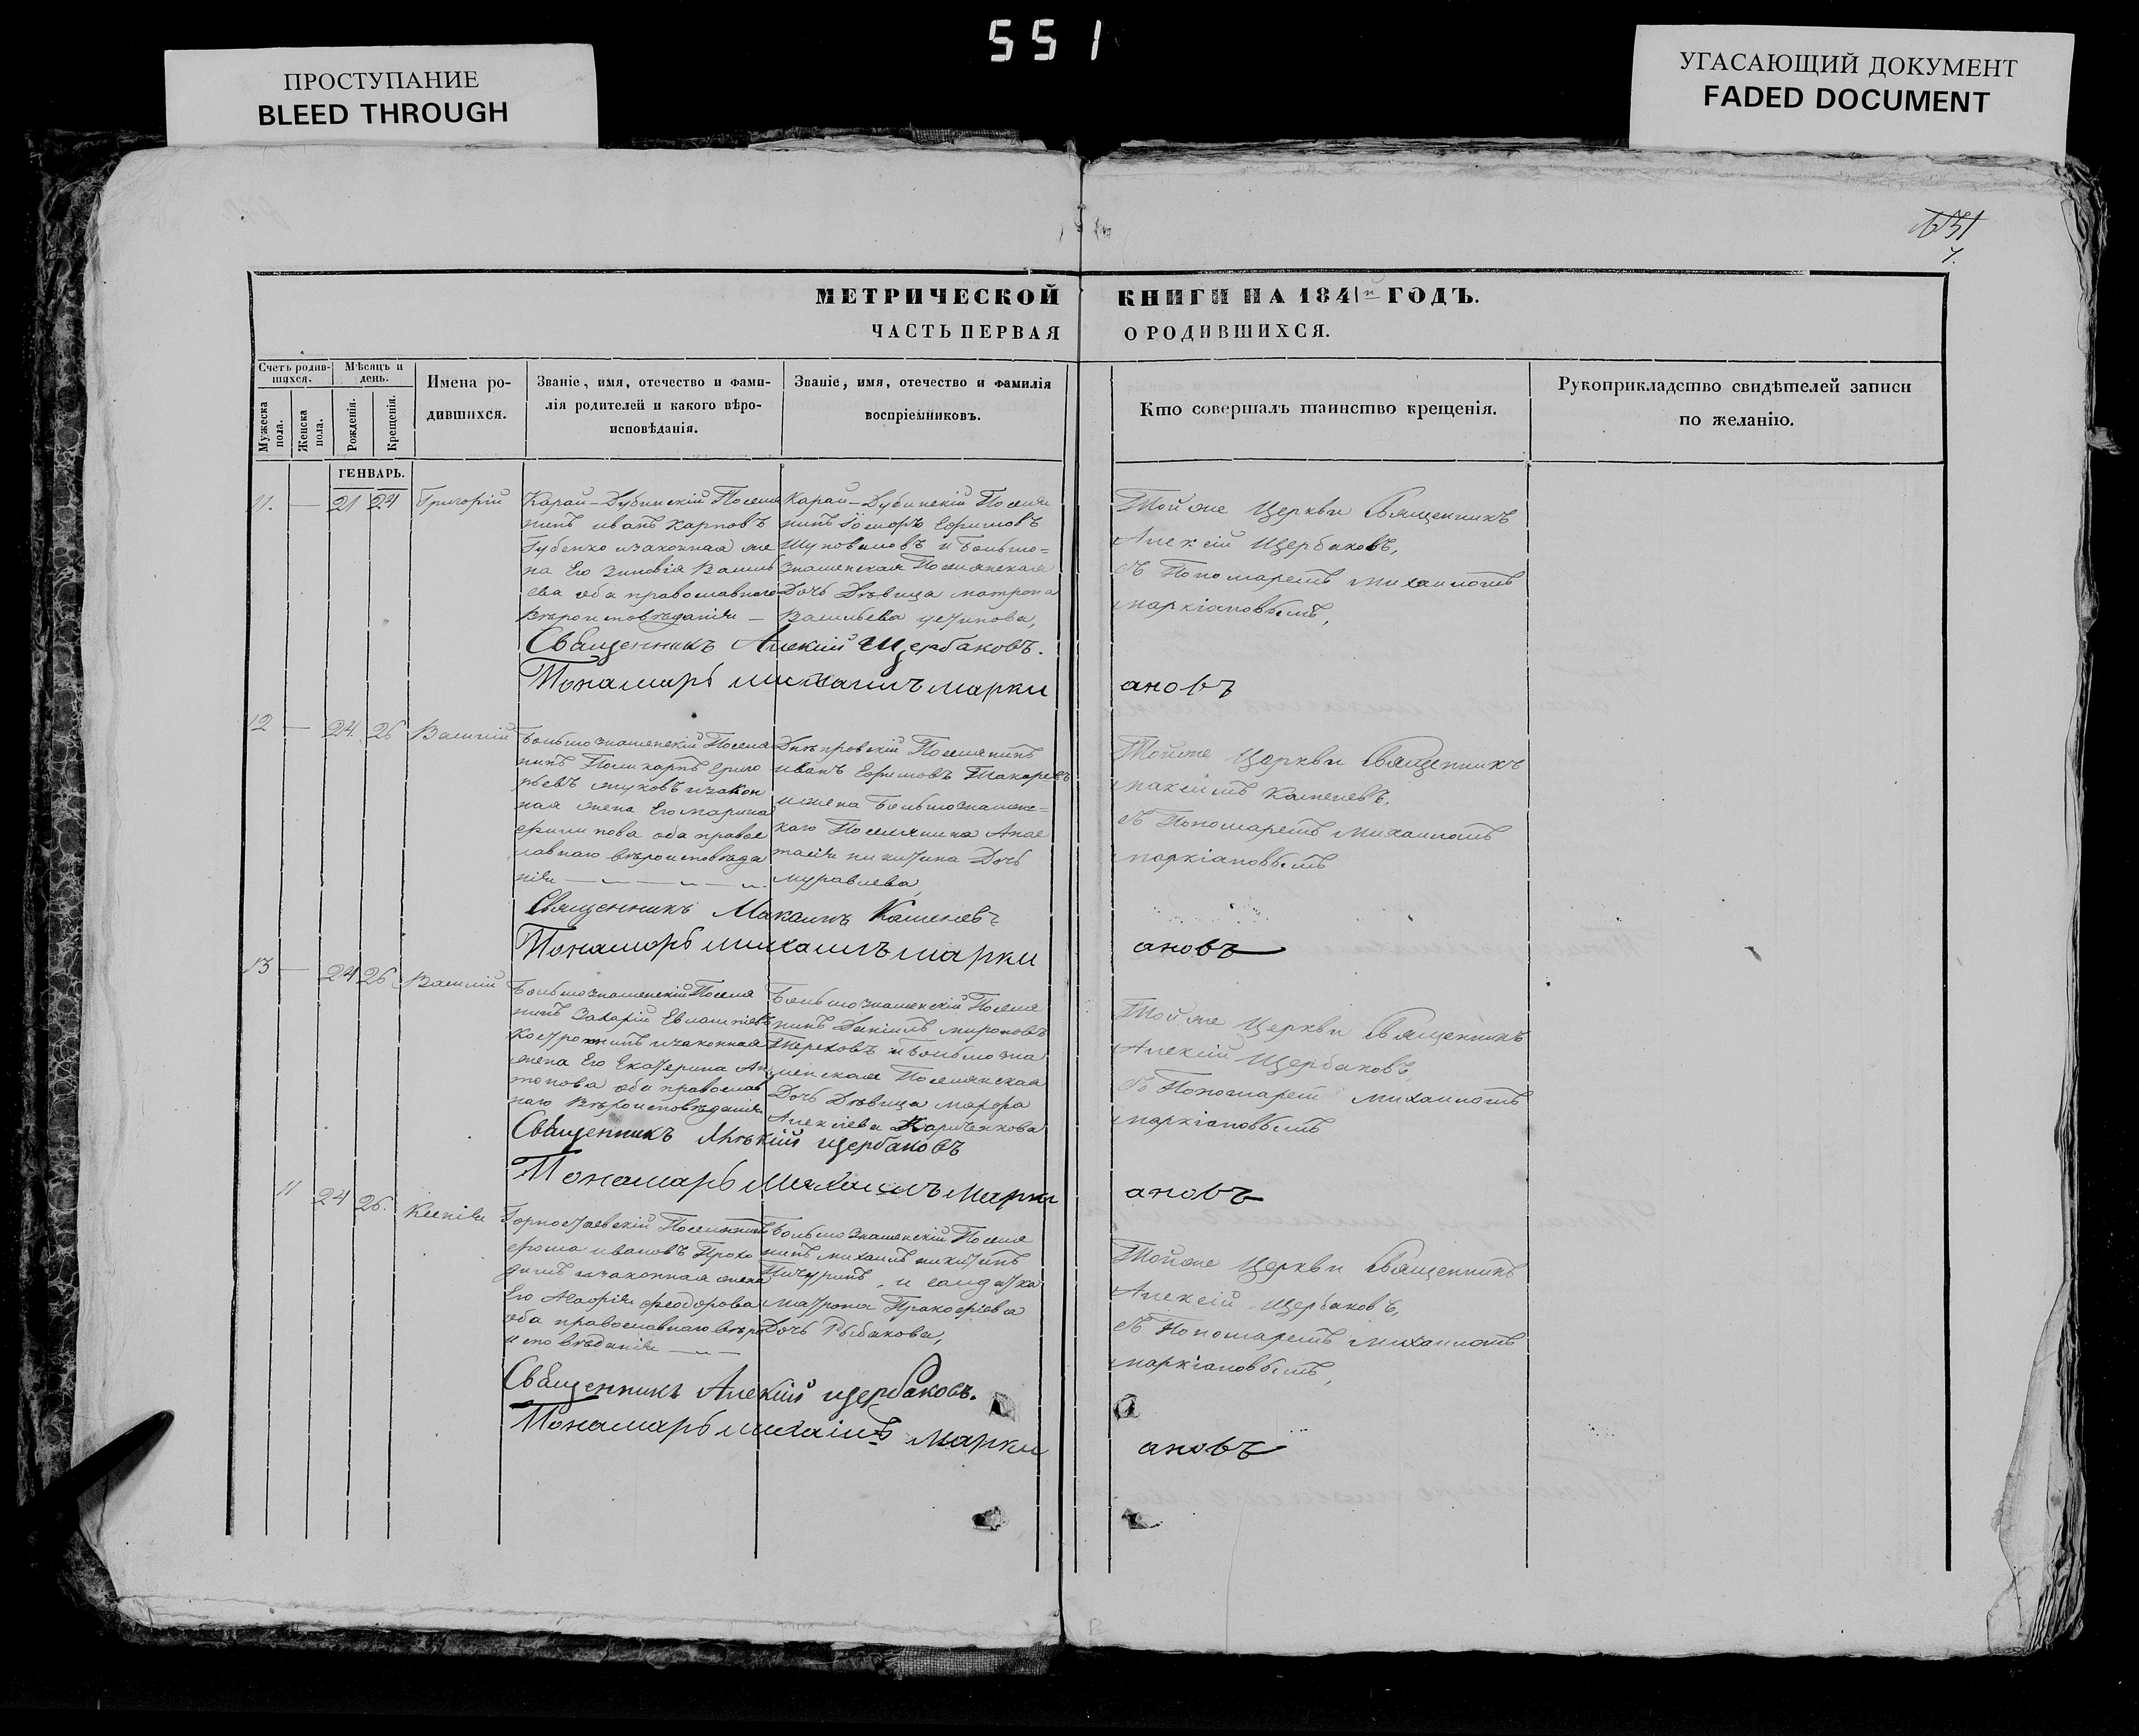 551
ПРОСТУПАНИЕ
BLEED THROUGH
УГАСАЮЩИЙ ДОКУМЕНТ
FADED DOCUMENT
МЕТРИЧЕСКОЙ КНИГИ НА 1841й ГОДЪ.
ЧАСТЬ ПЕРВАЯ О РОДИВШИХСЯ.
Счетъ родив-
шихся.
Мѣсяцъ и
день.
Мужеска
пола.
Женска
пола.
Рожденія.
Крещенія.
Имена ро-
дившихся.
Званіе, имя, отечество и фами-
лія родителей и какого вѣро-
исповѣданія.
Званіе, имя, отечество и фамилія
воспріемниковъ.
Кто совершалъ таинство крещенія.
Рукоприкладство свидѣтелей записи
по желанію.
ГЕНВАРЬ.
11. — 21 24 Григорій
Карай-Дубинскій Поселя
нинъ иванъ карповъ
Губенко изаконная же
на Его Зиновія Василь
ева оба православнаго
Вѣроисповѣданія —
Карай-Дубинскій Поселя
нинъ Ефимовъ
Шуповаловъ и Большо=
знаменская Поселянская
Дочь Дѣвица матрона
Васильева
Тойже Церкви Священникъ
Алексій Щербаковъ,
съ Пономаремъ михаиломъ
маркіановымъ,
Священникъ Алекій Щербаковъ.
Понамарь михаилъ марки
ановъ
12 — 24. 26 Василій
Большознаменскій Поселя
нинъ Поликарпъ Григо
рьевъ жуковъ изакон
ная жена Его марина
филипова оба правос
лавнаго вѣроисповѣда
нія
Днѣпровскій Поселянинъ
иванъ Ефимовъ Токаревъ
ижена Большознаменс=
каго Поселянина Анас
тасія никитина Дочь
муравлева,
Тойже Церкви Священникъ
максимъ Камневъ,
съ Пономаремъ Михаиломъ
маркіановымъ
Священникъ Макаимъ Камневъ
Понамарь михаилъ марки
ановъ
13 — 24 26 Василій
Большознаменскій Поселя
нинъ Захарій
изаконная
жена Его Екатерина Ан
тонова оба православ
наго Вѣроисповѣданія
Большознаменскій Поселя
нинъ Даніилъ мироновъ
Тереховъ и Большозна
менская Поселянская
Дочь Дѣвица марфа
Алексіева
Тойже Церкви Священникъ
Алексій Щербаковъ,
съ Пономаремъ михаиломъ
маркіановымъ
Священникъ Алекій Щербаковъ
Понамарь Михаилъ Марки
ановъ
11 24 26. Ксенія
Горностаевскій Поселянинъ
фома ивановъ Прохо
динъ изаконная жена
Его Марія феодорова
оба православнаго вѣро
исповѣданія
Большознаменскій Поселя
нинъ михаилъ никитинъ
Пичуринъ, и солдатка
матрона Пракофіева
Дочь Рыбакова,
Тойже Церкви Священникъ
Алексій Щербаковъ,
съ Пономаремъ Михаиломъ
маркіановымъ,
Священникъ Алекій Щербаковъ.
Понамарь михаилъ Марки
ановъ